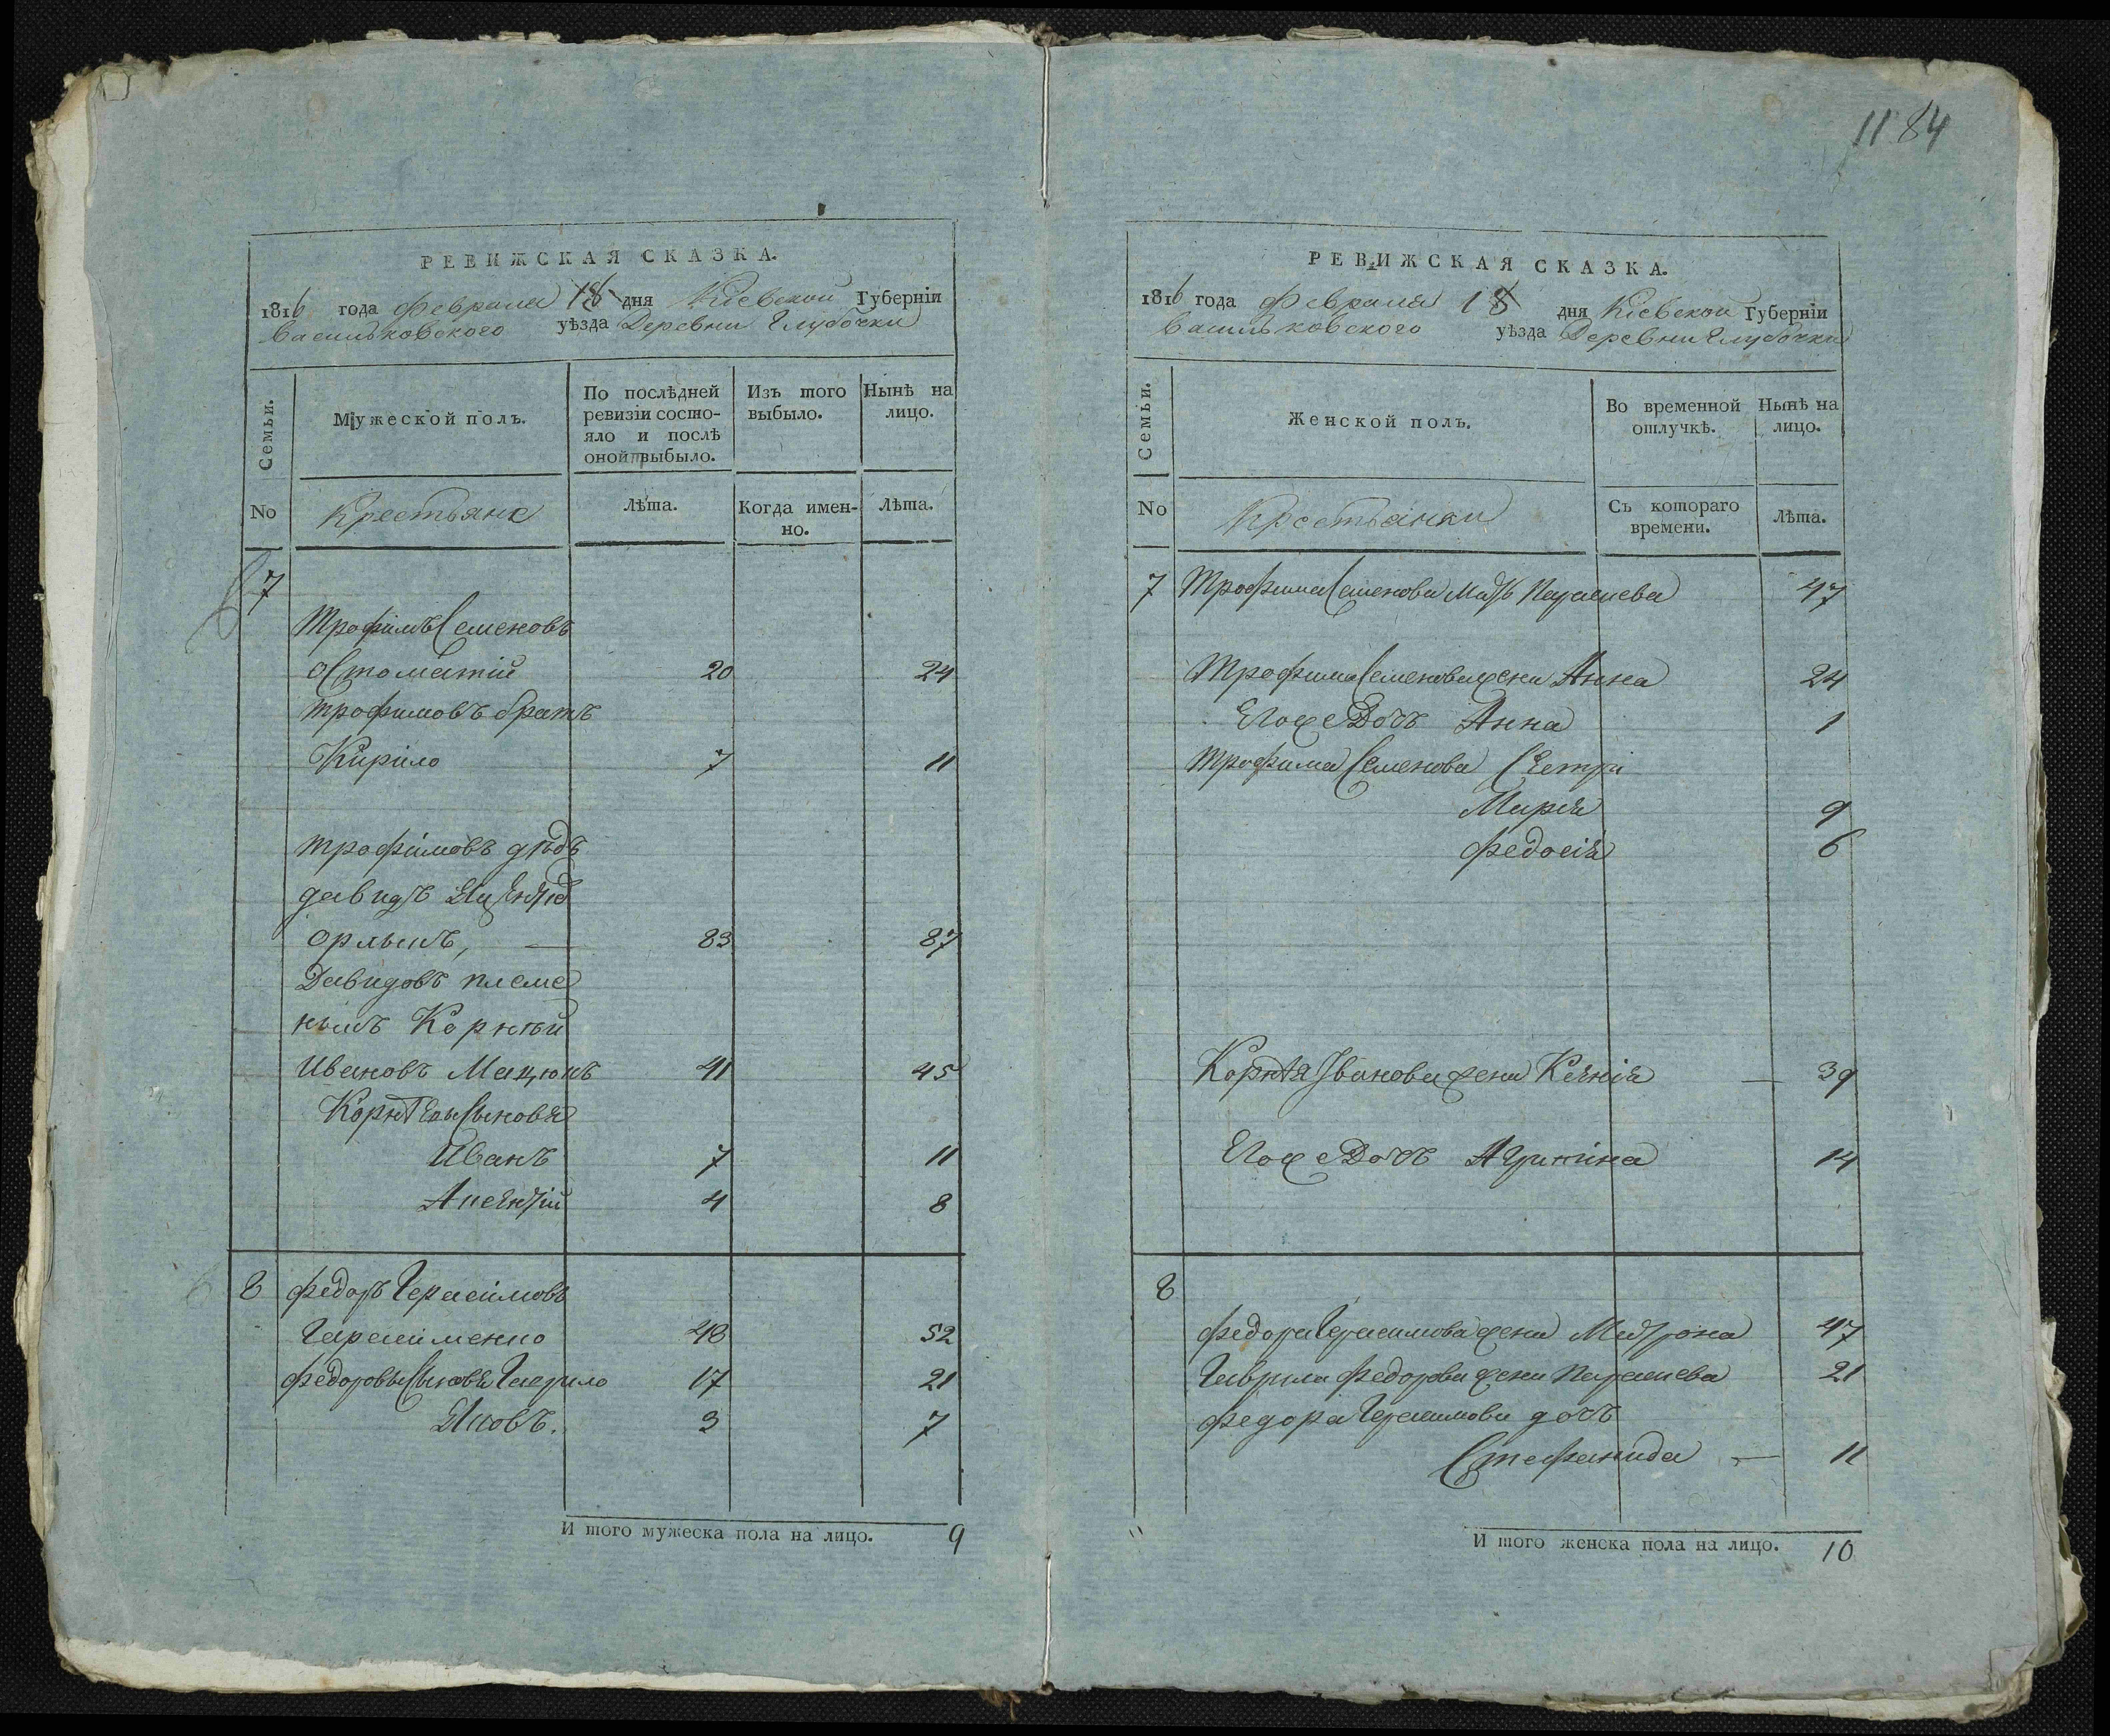 1184
РЕВИЖСКАЯ СКАЗКА.
1816 года февраля 18 дня Кіевской Губерніи
Васильковского уѣзда Деревни Глубочки
Семьи.
Мужеской полъ.
По послѣдней ревизіи состояло и послѣ оной выбыло.
Изъ того выбыло.
Нынѣ на лицо.
No
Крестьяне
Лѣта.
Когда именно.
Лѣта.
7
Трофимъ Семеновъ
20 24
Трофимовъ братъ
Кирило 7 11
Трофимовъ дѣдъ
давидъ
83 87
Давидовъ племе
никъ Корнѣй
Ивановъ Мацюкъ 41 45
Корнѣевы Сыновя
Иванъ 7 11
4 8
8 Федоръ Герасимовъ
Гарасименко 48 52
Федоровы Сыновя Гаврило 17 21
Яковъ. 3 7
И того мужеска пола на лицо. 9
РЕВИЖСКАЯ СКАЗКА.
1816 года февраля 18 дня Кіевской Губерніи
Васильковского уѣзда Деревни Глубочки
Семьи.
Женской полъ.
Во временной отлучкѣ.
Нынѣ на лицо.
No
Крестьянки
Съ котораго времени.
Лѣта.
7 Трофима Семенова Мать Параскева 47
Трофима Семенова жена Анна 24
Его же Дочь Анна 1
Трофима Семенова Сестри
Марія 9
Федосія 6
Корнѣя Іванова жена Ксенія — 39
Его же Дочь 14
8
Федора Герасимова жена Матрона 47
Гаврила Федорова жена Параскева 21
Федора Герасимова дочь
Стефанида — 11
И того женска пола на лицо. 10